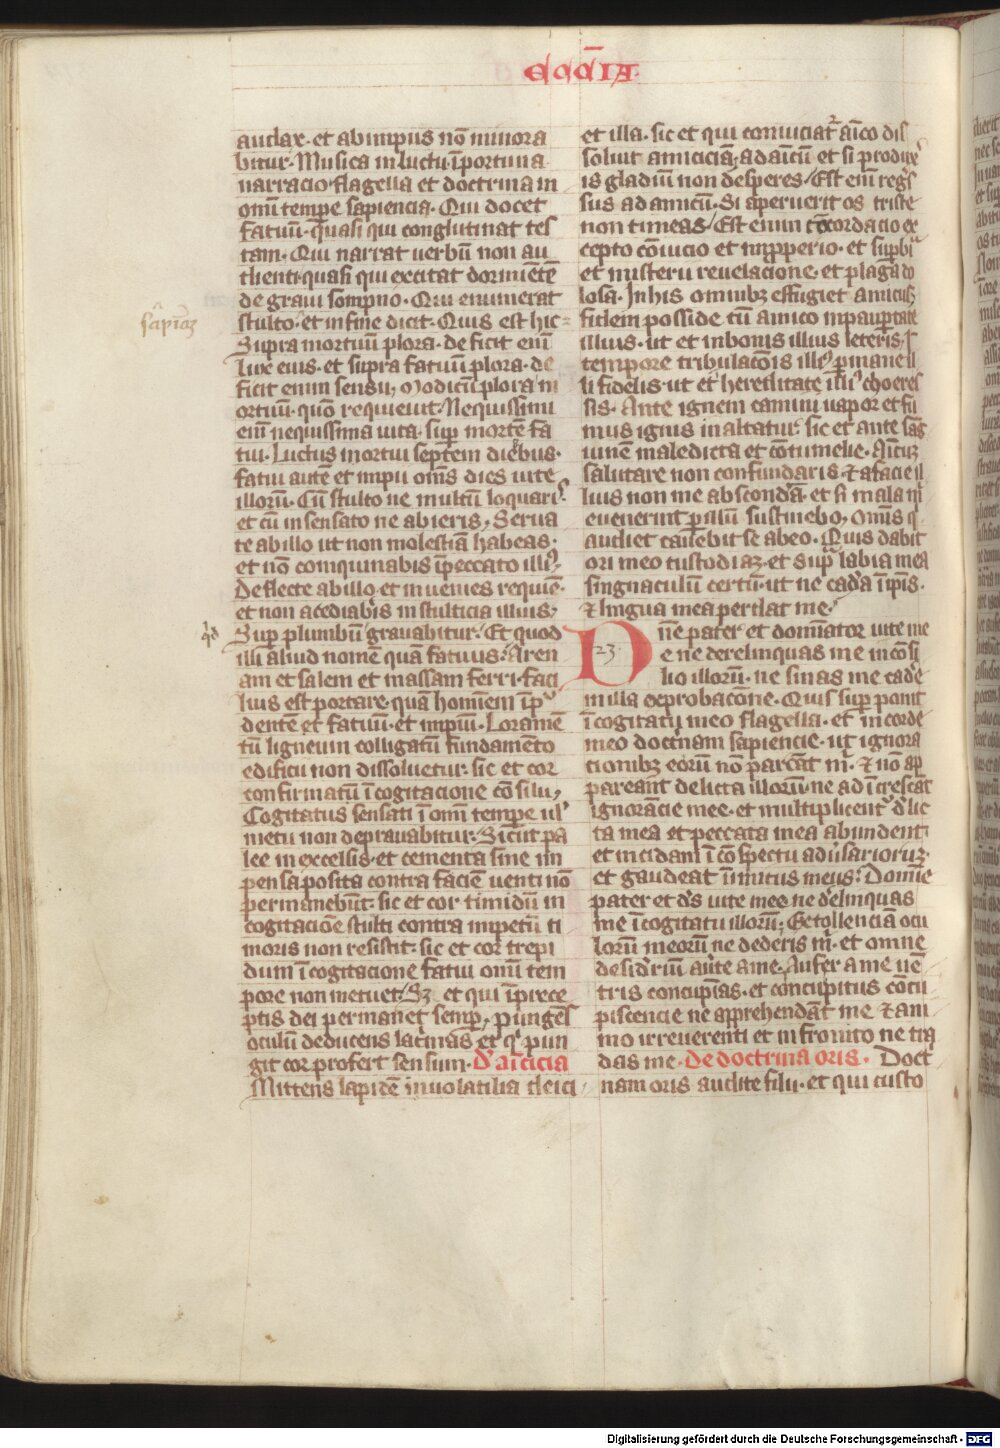 ecc̄cia
audax · et ab impiis nō minora
bitur · Musica in luctu īportuna
narracio · flagella et doctrina in
om̄i tempe sapiencia · Qui docet
fatuū · quasi qui conglutinat tes
tam · Qui narrat uerbū non au
dienti · quasi qui excitat dormiētē
de graui sompno · Qui enumerat
stulto · et in fine dicit · Quis est hic =
Supra mortuū plora · deficit eni̅
lux eius · et supra fatuū plora · de
ficit enim sensu, Modicū plora m
ortuū · quo̅ requieuit · Nequissimi
eni̅ nequissima uita · sup mortē fa
tui · Luctus mortui septem diebus ·
fatui autē et impii om̅s dies uite
illorū · Cū stulto ne multū loquaris ·
et cū insensato ne abieris, Serua
te ab illo ut non molestiā habeas ·
et nō coinquinabis ī peccato illi9,
Deflecte ab illo · et inuenies requiē ·
et non acediabis in stulticia illius,
Sup plumbū grauabitur · Et quod
illi aliud nomē quā fatuus · Aren
am et salem et massam ferri · faci
lius est portare · quā hominem īpru
dentē et fatuū · et impiū · Loramē
tū ligneum colligatū fundamēto
edificii non dissoluetur · sic et cor
confirmatū ī cogitacione cōsilii,
Cogitatus sensati ī omi̅ tempe ul'
metu non deprauabitur · Sicut pa
lee in excelsis · et cementa sine im
pensa posita contra faciē uenti nō
permanebūt · sic et cor timidū in
cogitacio̅e stulti contra impetū ti
moris non resistit · sic et cor trepi
dum ī cogitacione fatui omi̅ tem
pore non metuet · Sȝ et qui ī prece
ptis dei permanet semp, pungēs
oculū deducens lac'mas et q' pun
git cor profert sensum · D' aīcicia
Mittens lapidē in uolatilia deici
sapi̅aȝ
q'd
et illa · sic et qui conuiciat' aīco dis
soluit amiciciā, ad aīcū et si produx'
is gladiū non desperes, Est eni̅ regs
sus ad amicū · Si aperuerit os triste
non timeas, Est enim concordacio ex
cepto cōuicio et impperio · et supbi'
et misterii reuelacione · et plaga do
losa · In his omnibȝ effugiet amicus,
fidem posside cū amico in paup'tate
illius · ut et in bonis illius leteris, I
tempore tribulacōis illi9 pmane il
li fidelis · ut et hereditate illi9 coheres
sis · Ante ignem camini uapor et fu
mus ignis inaltatur · sic et ante sāg
uinē maledicta et cōtumelie · Aīcū
salutare non confundar · & a facie il
lius non me abscondā · et si mala m'
euenerint p illū sustinebo, Omīs q'
audiet cauebit se ab eo · Quis dabit
ori meo custodiaȝ · et sup' labia mea
singnaculū certū · ut ne cadā ī ip̄is ·
& lingua mea perdat me,
D 23 · n̄e pater et domīator uite me
e ne derelinquas me in cōsi
lio illorū · ne sinas me cade'
in illa exprobacōne · Quis sup ponit
ī cogitatu meo flagella · et in corde
meo doct'nam sapiencie · ut ignora
cionibȝ eorū nō parcāt m' · & nō ap
pareant delicta illorū · ne ad īcrescāt
ignorācie mee · et multiplicent' d'lic
ta mea et peccata mea abundent
et incidam ī cōspectu adu'sariorū ·
et gaudeat inimicus meus · Domīe
pater et d's uite mee ne d'elinquas
me ī cogitatu illorū, Extollenciā ocu
lorū meorū ne dederis m' · et omne
desid'riū au'te a me, Aufer a me uē
tris concupi̅as · et concupitus cōcu
piscencie ne apprehendāt me & ani
mo irreuerenti et infronito ne tra
das me · De doctrina oris · Doct'
nam oris audite filii · et qui custo
Digitalisierung gefördert durch die Deutsche Forschungsgemeinschaft - DFG